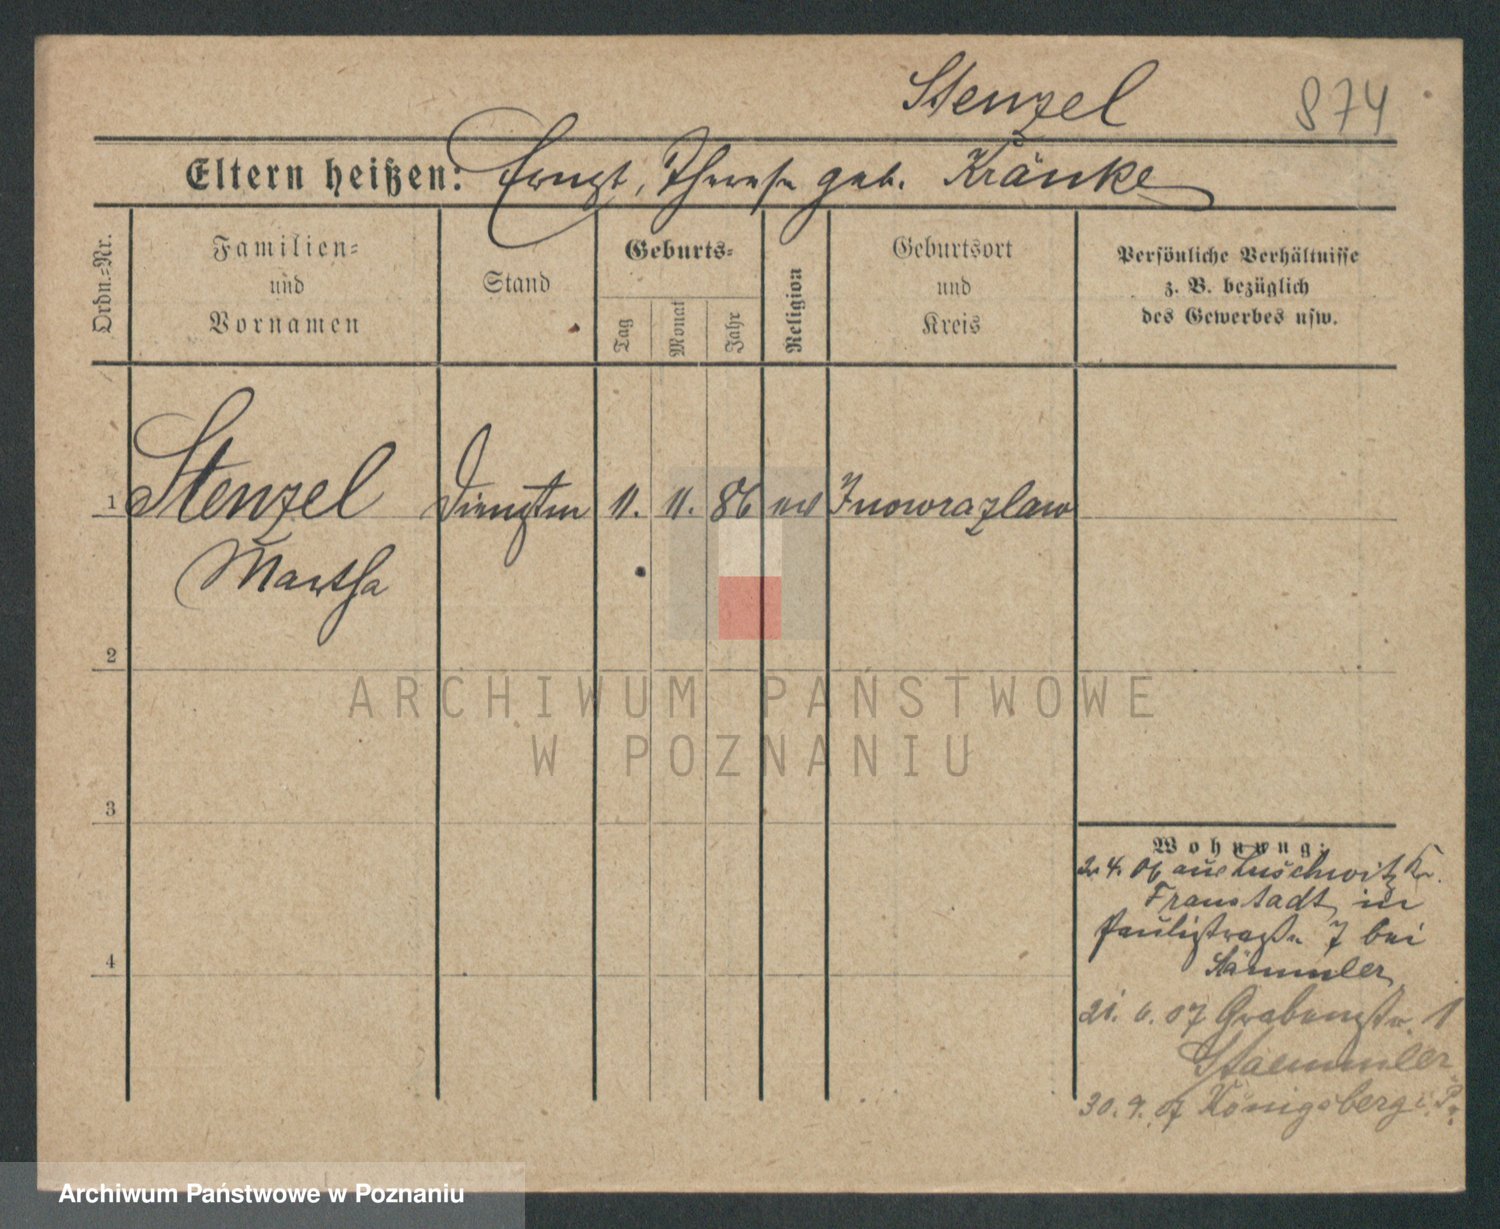 Stenzel
874
Eltern heißen: Ernst, Therese geb. Kränke
Ordn.=Nr.
Familien=
und
Vornamen
Stand
Geburts=
Tag
Monat
Jahr
Religion
Geburtsort
und
Kreis
Persönliche Verhältnisse
z. B. bezüglich
des Gewerbes usw.
1 Stenzel Dienstm 11. 11. 86 ev Inowrazlaw
Martha
2
3
4
Wohnung:
2. 4. 06 aus Luschwitz Kr.
Fraustadt, in
Paulistraße 7 bei
Stämmler
21. 6. 07 Grabenstr. 1
Staemmler
30. 9. 07 Königsberg i. Pr.
ARCHIWUM PAŃSTWOWE
W POZNANIU
Archiwum Państwowe w Poznaniu